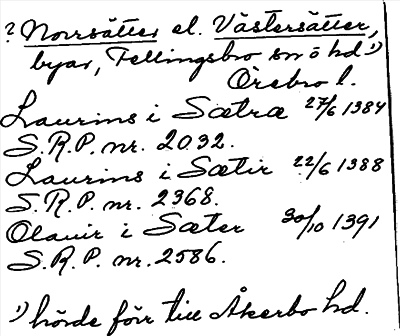 ? Norrsätter el. Västersätter,
byar, Fellingsbro sn ö hd 1)
Örebro l.
Laurins i Sætræ 27/6 1384
S.R.P. nr. 2032.
Laurins i Sætir 22/6 1388
S.R.P. nr. 2368.
Olauir i Sæter 30/10 1391
S.R.P. nr. 2586.
1) hörde förr till Åkerbo hd.